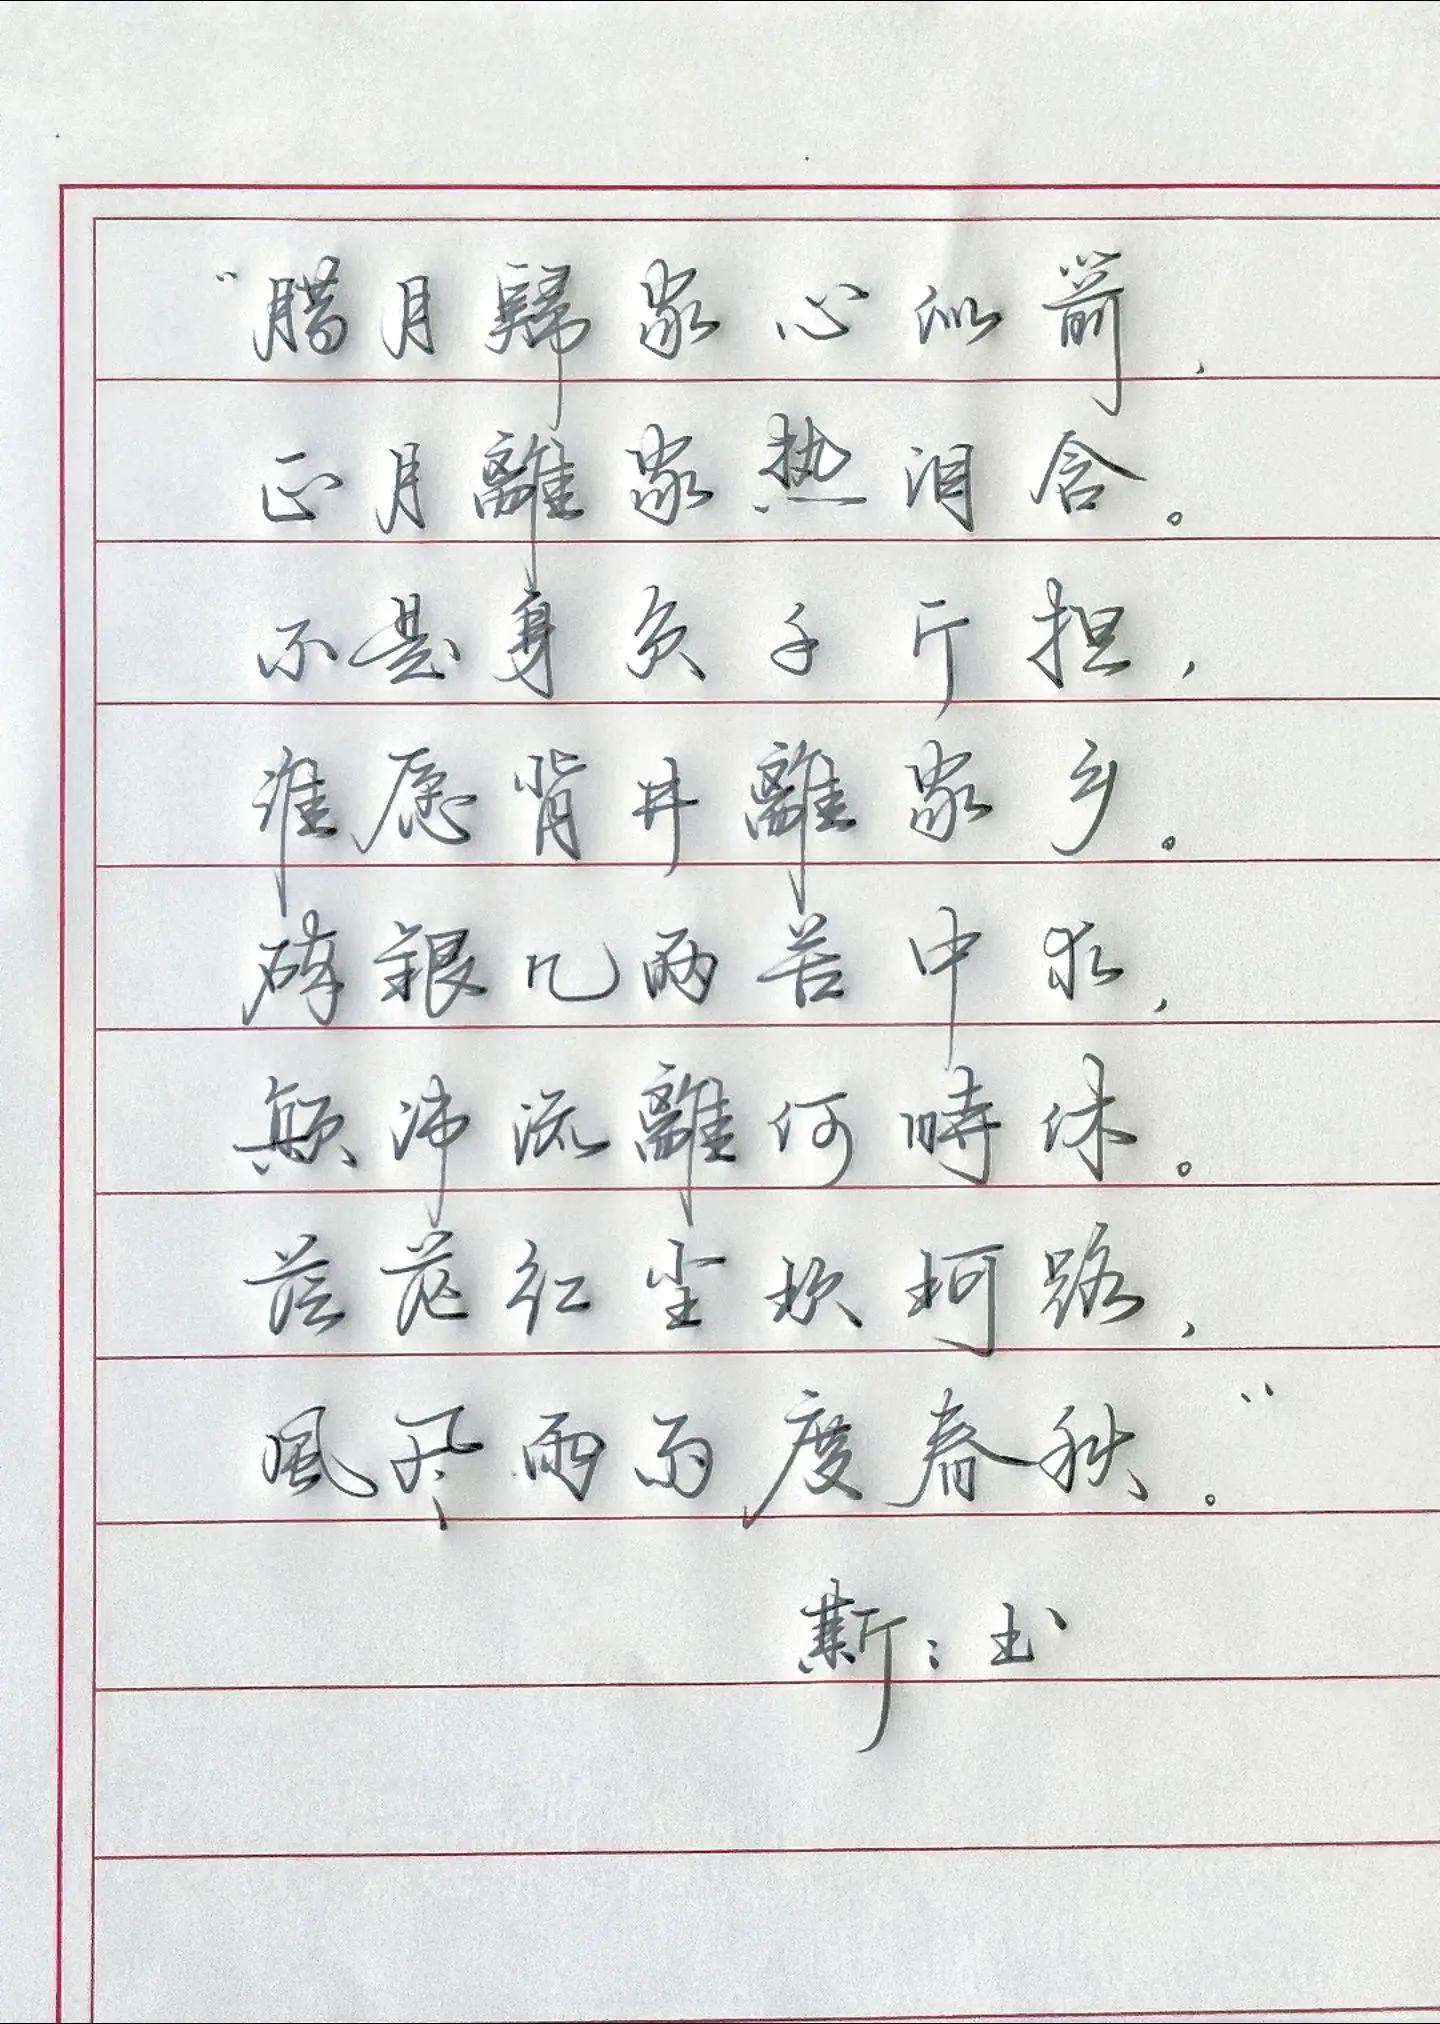 “腊月歸家心似箭，
正月離家热泪含。
不是身负千斤担，
谁愿背井離家乡。
碎銀几两苦中求，
颠沛流離何時休。
茫茫红尘坎坷路，
風风雨雨度春秋。”
斯：书